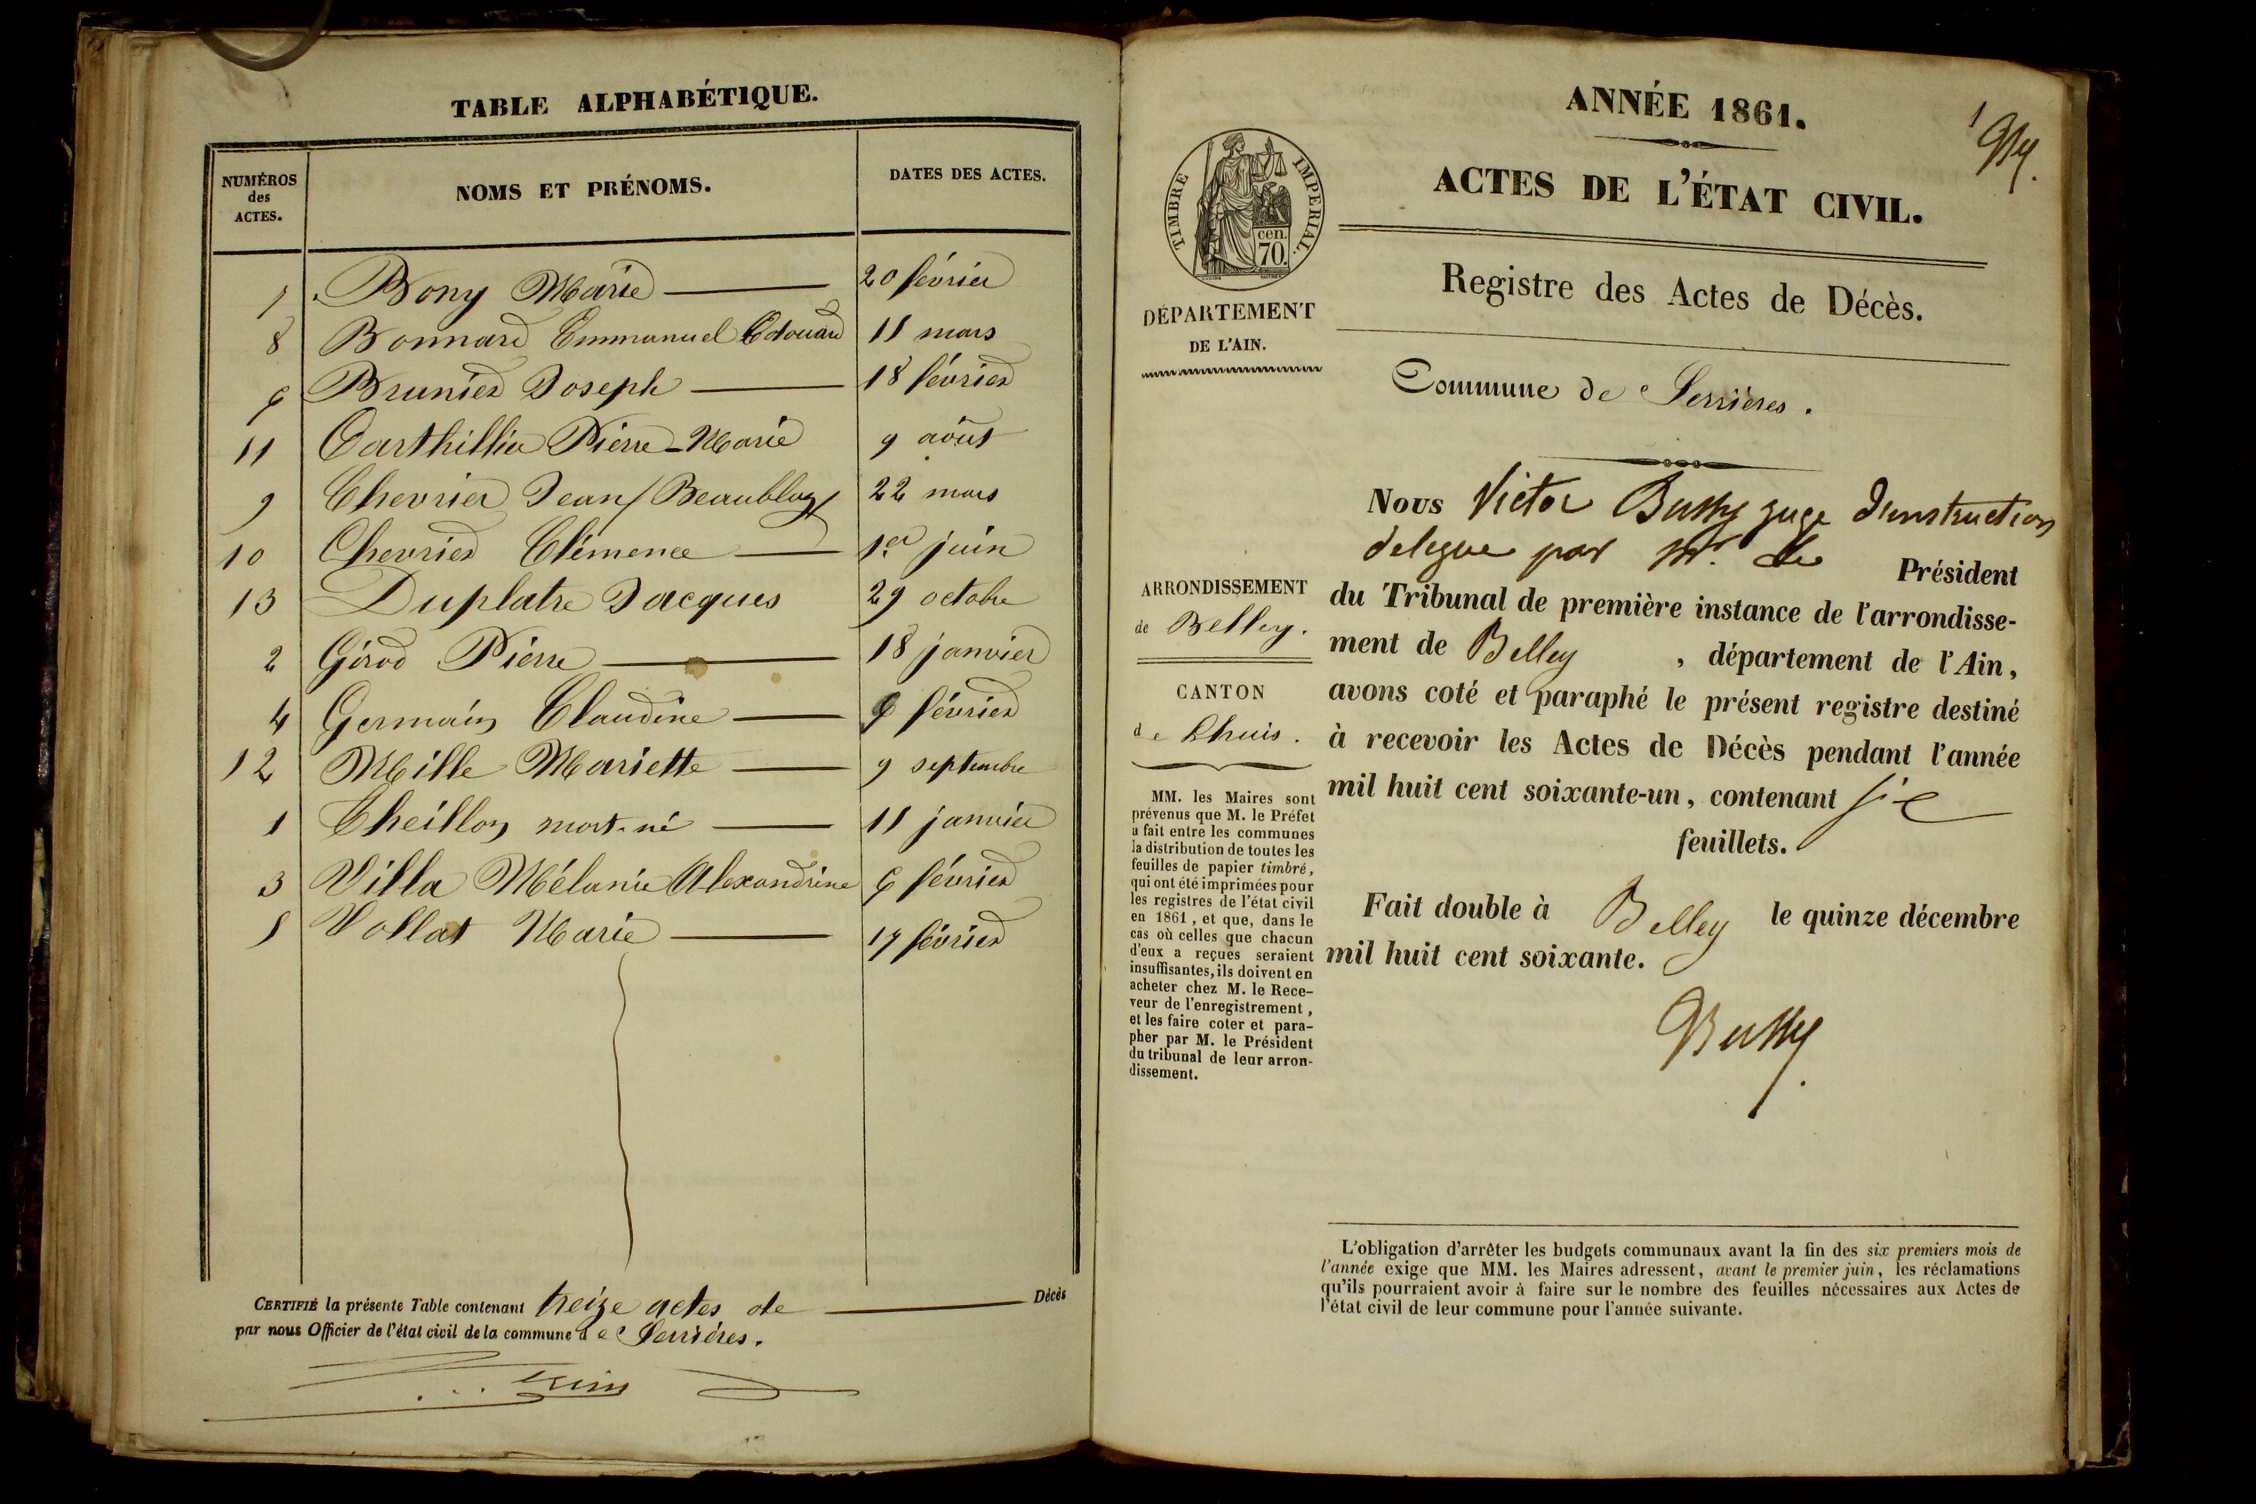 TABLE ALPHABÉTIQUE.
NUMÉROS des ACTES.
NOMS ET PRÉNOMS.
DATES DES ACTES.
7 Bony Marie 20 février
8 Bonnard Emmanuel Edouard 11 mars
6 Brunier Joseph 18 février
11 Carthillier Pierre-Marie 9 août
9 Chevrier Jean 22 mars
10 Chevrier Clémence 1er juin
13 Duplatre Jacques 29 octobre
2 Girod Pierre 18 janvier
4 Germain Claudine 6 février
12 Mille Mariette 9 septembre
1 Theillon mort-né 11 janvier
3 Villa Mélanie Alexandrine 6 février
5 Vollat Marie 17 février
CERTIFIÉ la présente Table contenant treize actes de Décès
par nous Officier de l'état civil de la commune de Serrières.
ANNÉE 1861.
1
ACTES DE L'ÉTAT CIVIL.
TIMBRE IMPERIAL.
cen.
70.
DÉPARTEMENT
DE L'AIN.
Registre des Actes de Décès.
Commune de Serrières.
ARRONDISSEMENT
de Belley.
CANTON
de Lhuis.
MM. les Maires sont
prévenus que M. le Préfet
a fait entre les communes
la distribution de toutes les
feuilles de papier timbré,
qui ont été imprimées pour
les registres de l'état civil
en 1861, et que, dans le
cas où celles que chacun
d'eux a reçues seraient
insuffisantes, ils doivent en
acheter chez M. le Rece-
veur de l'enregistrement,
et les faire coter et para-
pher par M. le Président
du tribunal de leur arron-
dissement.
Nous Victor Bussy juge d'instruction
delegue par Mr. le Président
du Tribunal de première instance de l'arrondisse-
ment de Belley, département de l'Ain,
avons coté et paraphé le présent registre destiné
à recevoir les Actes de Décès pendant l'année
mil huit cent soixante-un, contenant six
feuillets.
Fait double à Belley le quinze décembre
mil huit cent soixante.
Bussy
L'obligation d'arrêter les budgets communaux avant la fin des six premiers mois de
l'année exige que MM. les Maires adressent, avant le premier juin, les réclamations
qu'ils pourraient avoir à faire sur le nombre des feuilles nécessaires aux Actes de
l'état civil de leur commune pour l'année suivante.